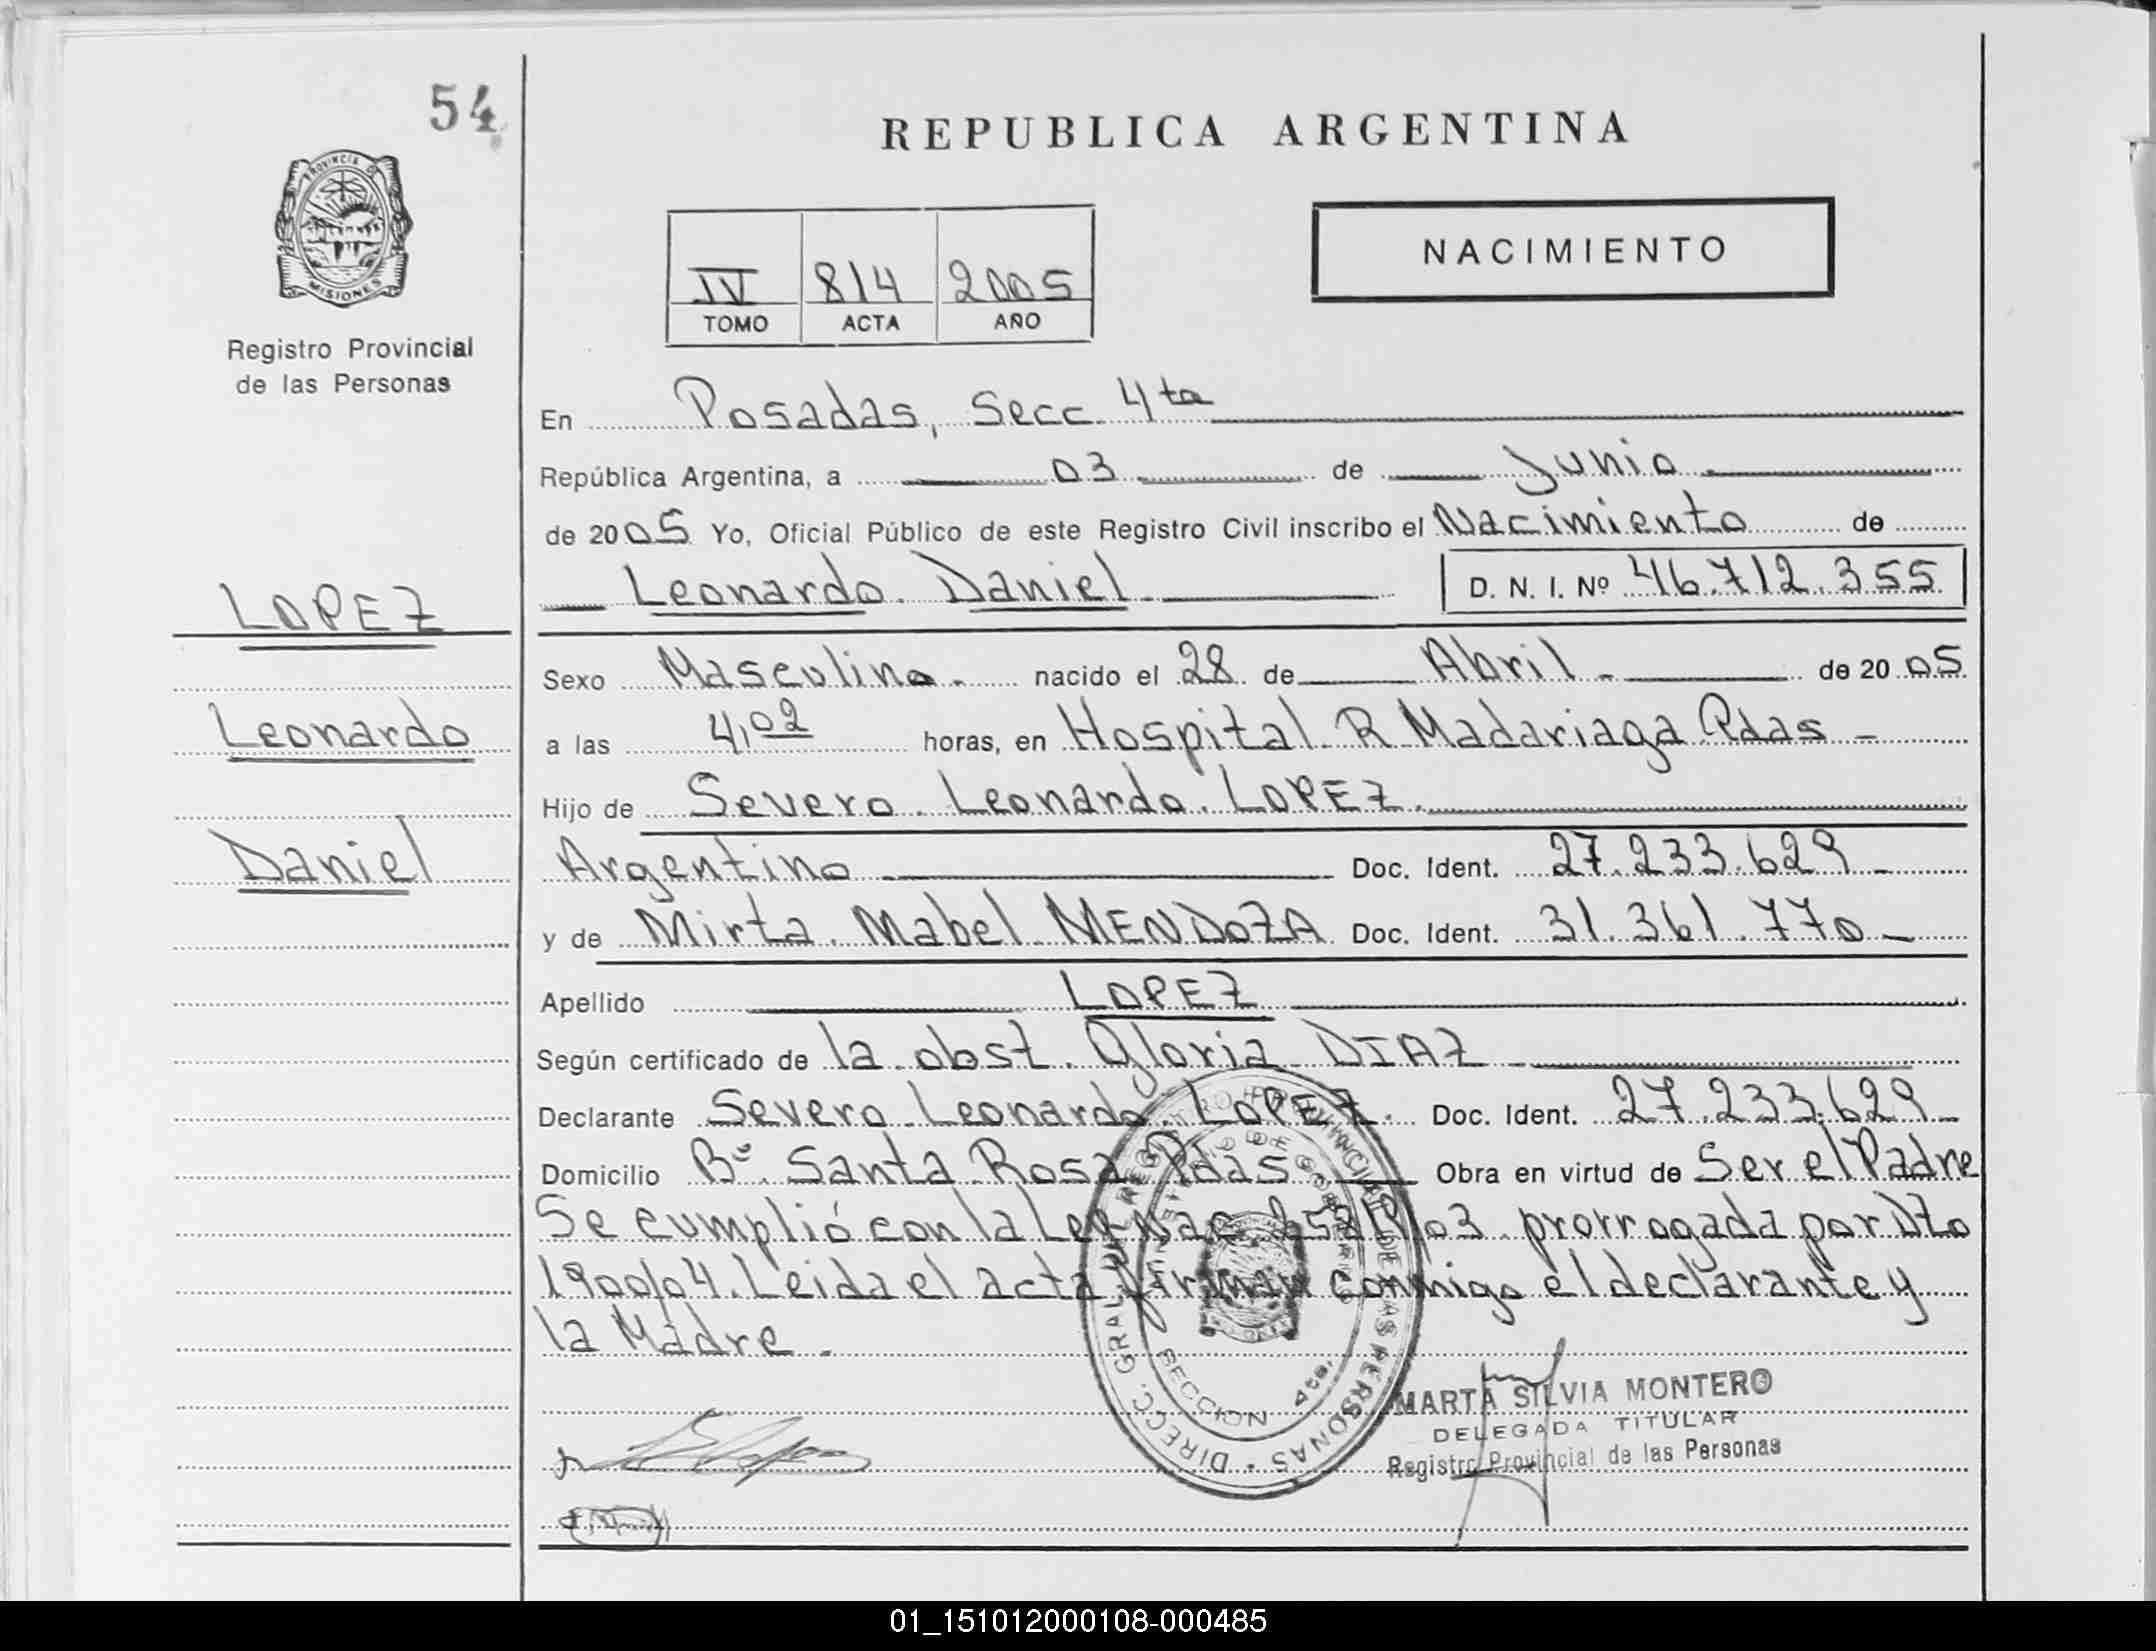 54
PROVINCIA DE
MISIONES
Registro Provincial
de las Personas
LOPEZ
Leonardo
Daniel
REPUBLICA ARGENTINA
NACIMIENTO
IV 814 2005
TOMO ACTA AÑO
En Posadas, Secc. 4ta
República Argentina, a 03 de Junio
de 2005 Yo, Oficial Público de este Registro Civil inscribo el Nacimiento de
Leonardo Daniel D. N. I. Nº 46.712.355
Sexo Masculino nacido el 28 de Abril de 2005
a las 4,02 horas, en Hospital R Madariaga Pdas
Hijo de Severo Leonardo LOPEZ
Argentino Doc. Ident. 27.233.629
y de Mirta Mabel MENDOZA Doc. Ident. 31.361.770
Apellido LOPEZ
Según certificado de la obst. Gloria DIAZ
Declarante Severo Leonardo LOPEZ Doc. Ident. 27.233.629
Domicilio Bº Santa Rosa Pdas Obra en virtud de Ser el Padre
Se cumplió con la Ley Nac. /03 prorrogada por Dto
1900/04. Leida el acta firman conmigo el declarante y
la Madre.
DIRECC. GRAL. DEL REGISTRO PROVINCIAL DE LAS PERSONAS
SECCION 4ta.
MARTA SILVIA MONTERO
DELEGADA TITULAR
Registro Provincial de las Personas
01_151012000108-000485